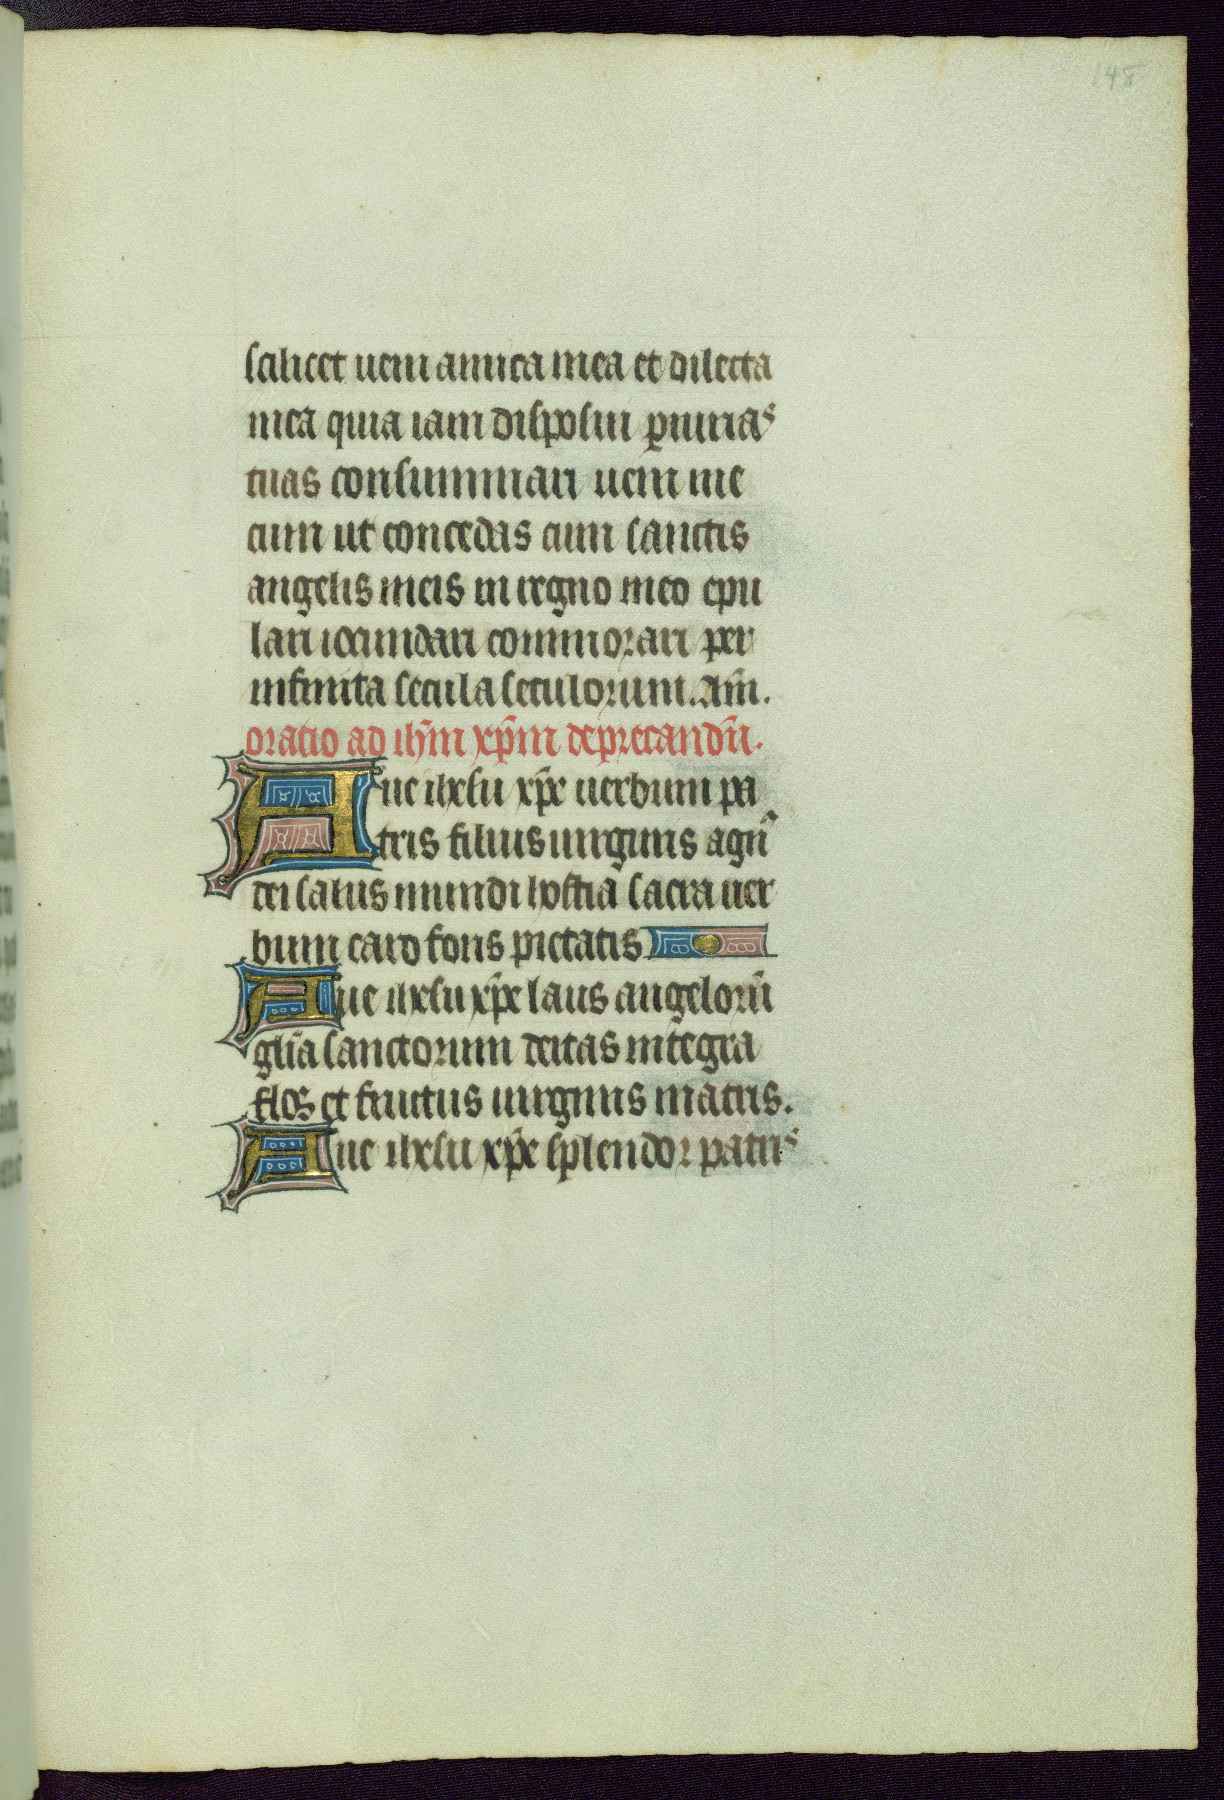 148
scilicet ueni amica mea et dilecta
mea quia iam disposui
tuas consummari ueni me
cum ut concedas cum sanctis
angelis meis in regno meo epu
lari iocundari commorari per
infinita secula seculorum. am̄.
oratio ad ih̄m xp̄m deprecandū.
Aue ihesu xp̄e uerbum pa
tris filius uirginis agn̄
dei salus mundi hostia sacra uer
bum caro fons pietatis
Aue ihesu xp̄e laus angelorū
gl̄ia sanctorum deitas integra
flos et fructus uirginis matris.
Aue ihesu xp̄e splendor patris